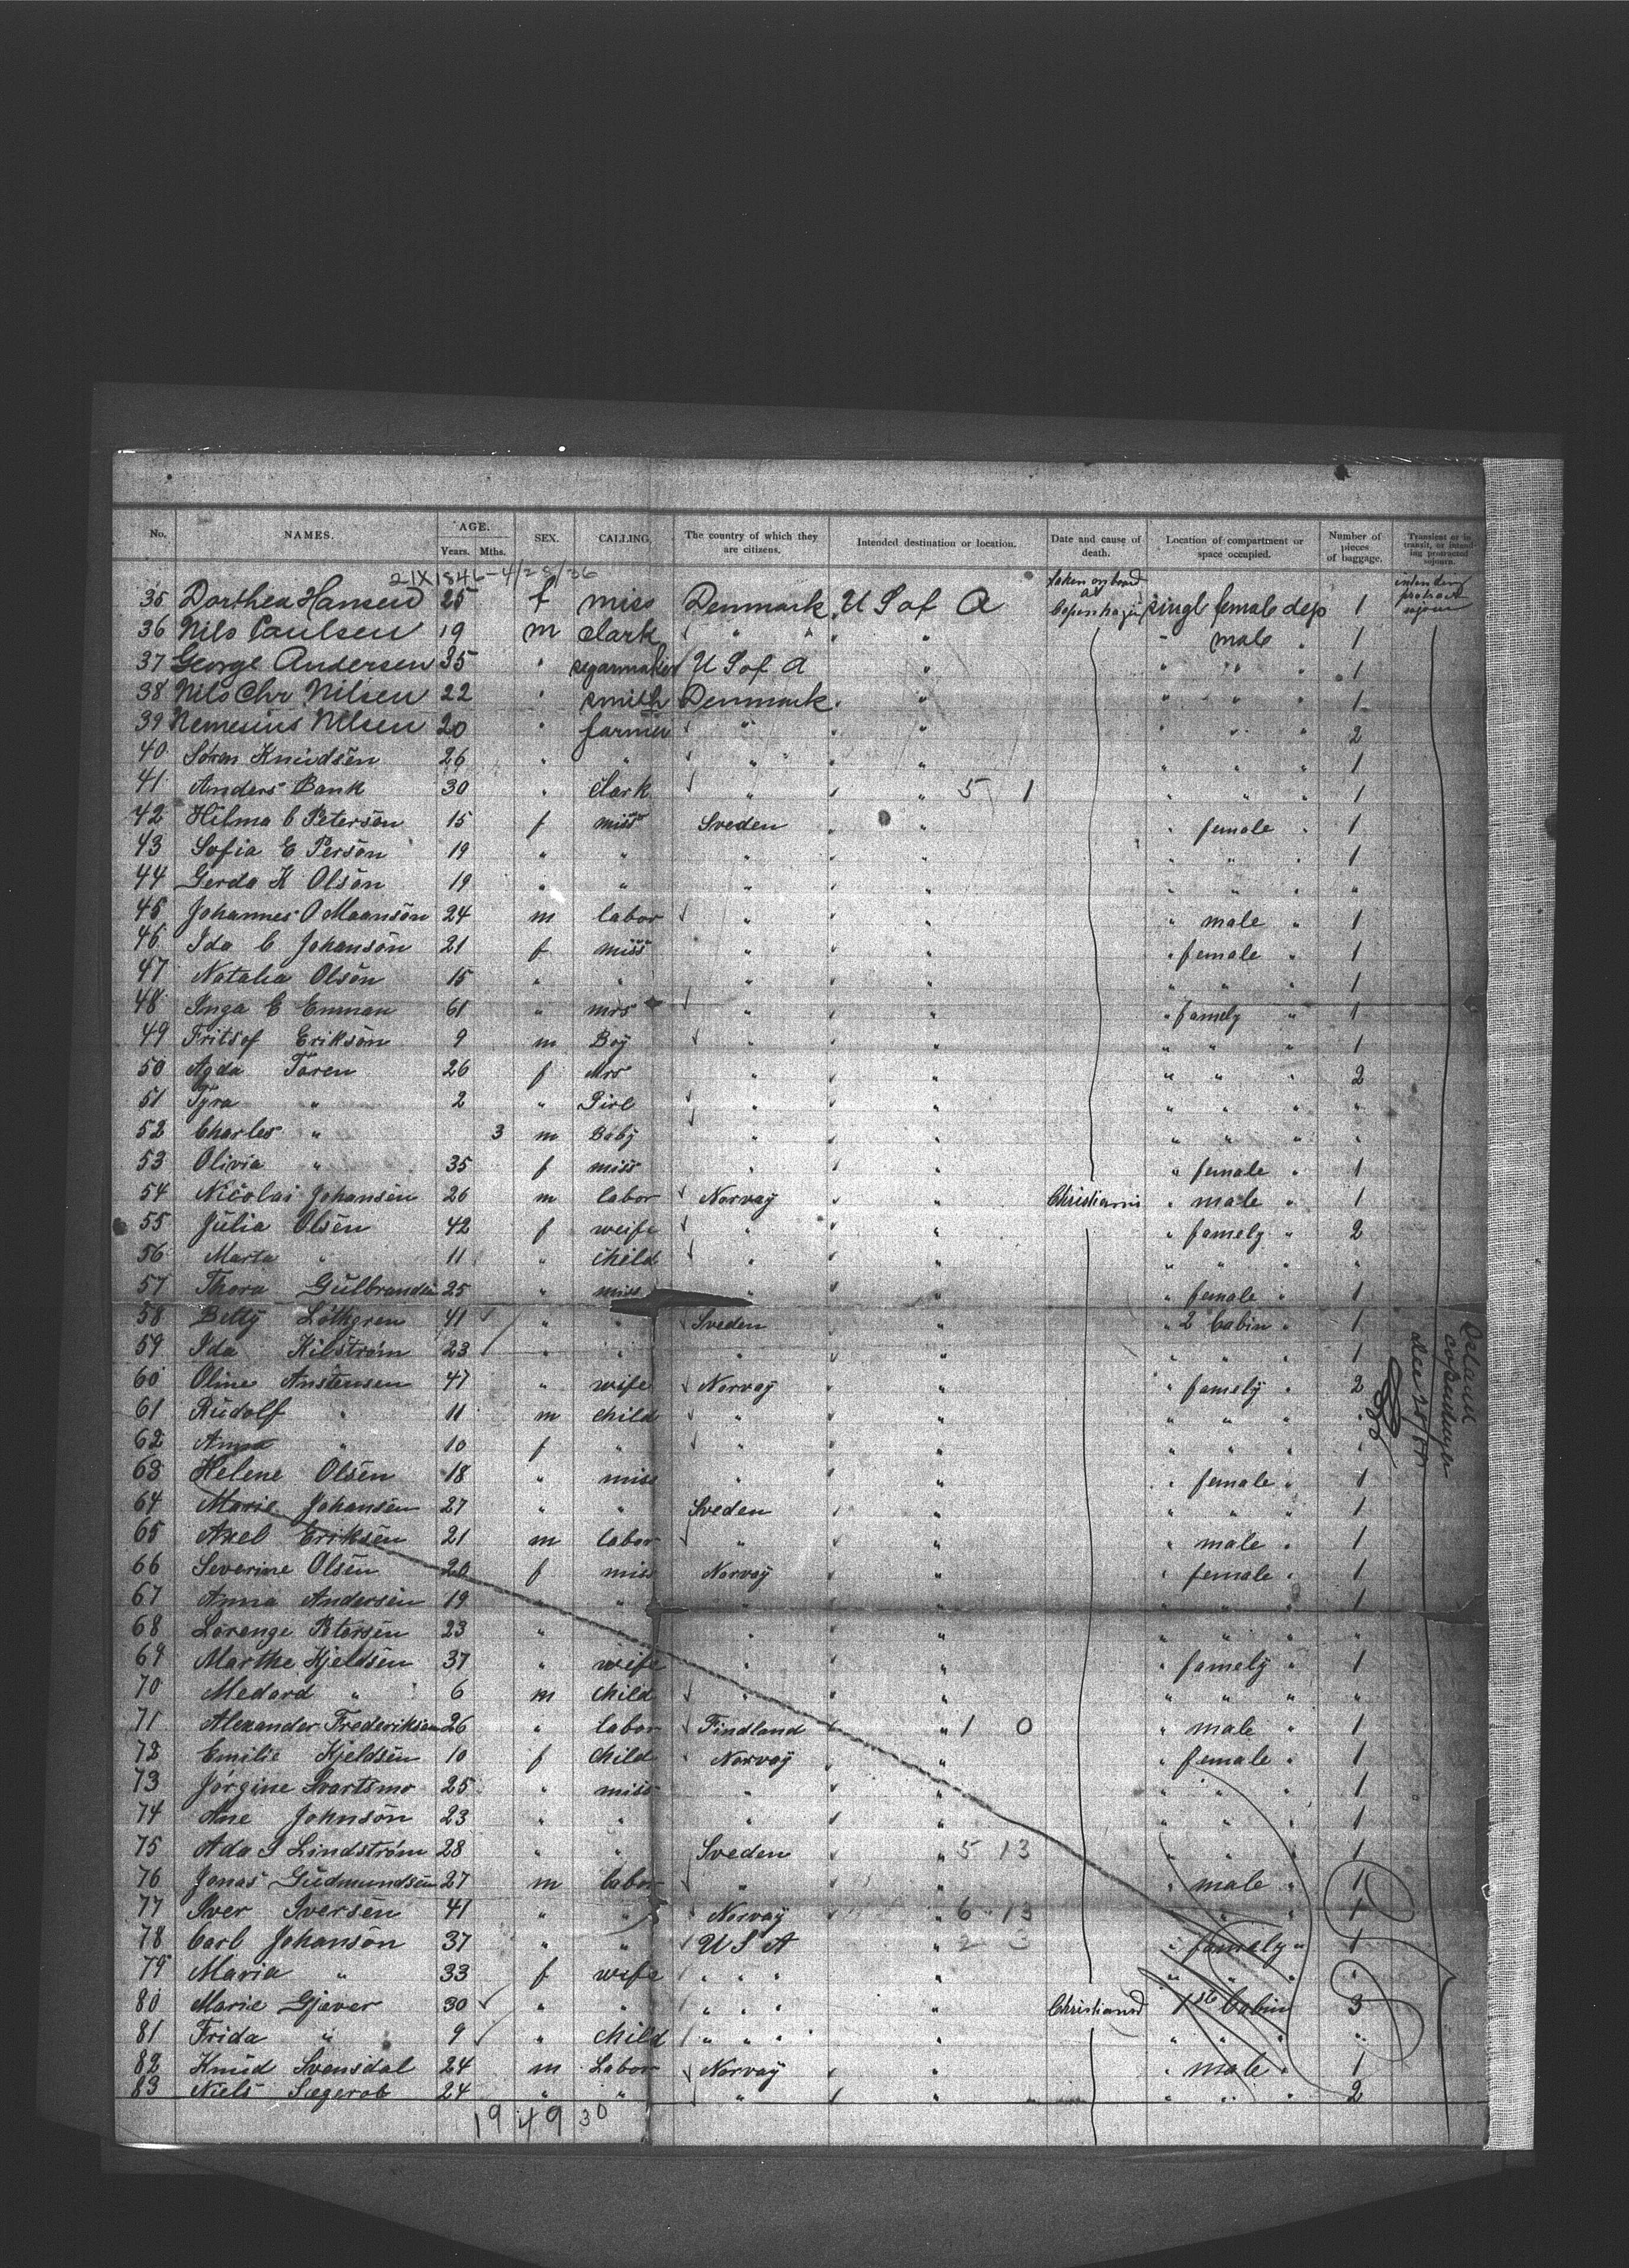 No. NAMES. AGE. Years. Mths. SEX. CALLING. The country of which they are citizens. Intended destination or location. Date and cause of death. Location of compartment or space occupied. Number of pieces of baggage. Transient or in transit, or intending protracted sojourn.
21X1846-4/28/36 taken onboard at intending protract sojourn
35 Dorthea Hansen 25 f miss Denmark U S of A Copenhagen singl female dep 1
36 Nils Paulsen 19 m clark " " " " male " 1
37 George Andersen 35 " segarmaker U S of A " " " " 1
38 Nils Chr Nilsen 22 " smith Denmark " " " " 1
39 Nemesius Nilsen 20 " farmer " " " " " 2
40 Søren Knudsen 26 " " " " " " " 1
41 Anders Bank 30 " Clark " " 5 1 " " " 1
42 Hilma C Peterson 15 f miss Sveden " " female " 1
43 Sofia E Person 19 " " " " " " " 1
44 Gerda K Olson 19 " " " " " " " "
45 Johannes O Maanson 24 m labor " " " male " 1
46 Ida C Johanson 21 f miss " " " female " 1
47 Natalia Olson 15 " " " " " " " 1
48 Inga E Enman 61 " mrs " " " famely " 1
49 Fritsof Erikson 9 m Boy " " " " " 1
50 Agda Toren 26 f Mrs " " " " " 2
51 Tyra " 2 " Girl " " " " " "
52 Charles " 3 m Baby " " " " " "
53 Olivia " 35 f miss " " " female " 1
54 Nicolai Johansen 26 m labor Norvay " Christiania " male " 1
55 Julia Olsen 42 f weife " " " famely " 2
56 Marta " 11 " Child " " " " " "
57 Thora Gulbrandsen 25 " miss " " " female " 1
58 Betty Løthgren 41 " " Sveden " " 2 Cabin " 1
59 Ida Kilstrom 23 " " " " " " " 1
60 Oline Anstensen 47 " wife Norvay " " famely " 2
61 Rudolf " 11 m child " " " " " "
62 Anna " 10 f " " " " " " "
63 Helene Olsen 18 " miss " " " female " 1
64 Marie Johansen 27 " " Sveden " " " " 1
65 Axel Eriksen 21 m labor " " " male " 1
66 Severine Olsen 20 f miss Norvay " " female " 1
67 Anna Andersen 19 " " " " " " " 1
68 Lorenge Petersen 23 " " " " " " "
69 Marthe Kjeldsen 37 " wife " " " famely " 1
70 Medard " 6 m Child " " " " " "
71 Alexander Frederiksen 26 " labor Findland " 1 0 " male " 1
72 Emilie Kjeldsen 10 f Child Norvay " " female " 1
73 Jørgine Svartsmo 25 " miss " " " " " 1
74 Ane Johnson 23 " " " " " " " 1
75 Ada S Lindstrøm 28 " " Sveden " 5 13 " " " 1
76 Jonas Gudmundsen 27 m labor " " " male " 1
77 Iver Iversen 41 " " Norvay " 6 13 " " " 1
78 Carl Johanson 37 " " U S A " 2 3 " famely " 1
79 Maria " 33 f wife " " " " " " " "
80 Marie Gjæver 30 " " " " " " Christiansd 1st Cabin 3
81 Frida " 9 " child " " " " " " " "
82 Knud Svensdal 24 m Labor Norvay " " male " 1
83 Niels 24 " " " " " " " 2
19 49 30